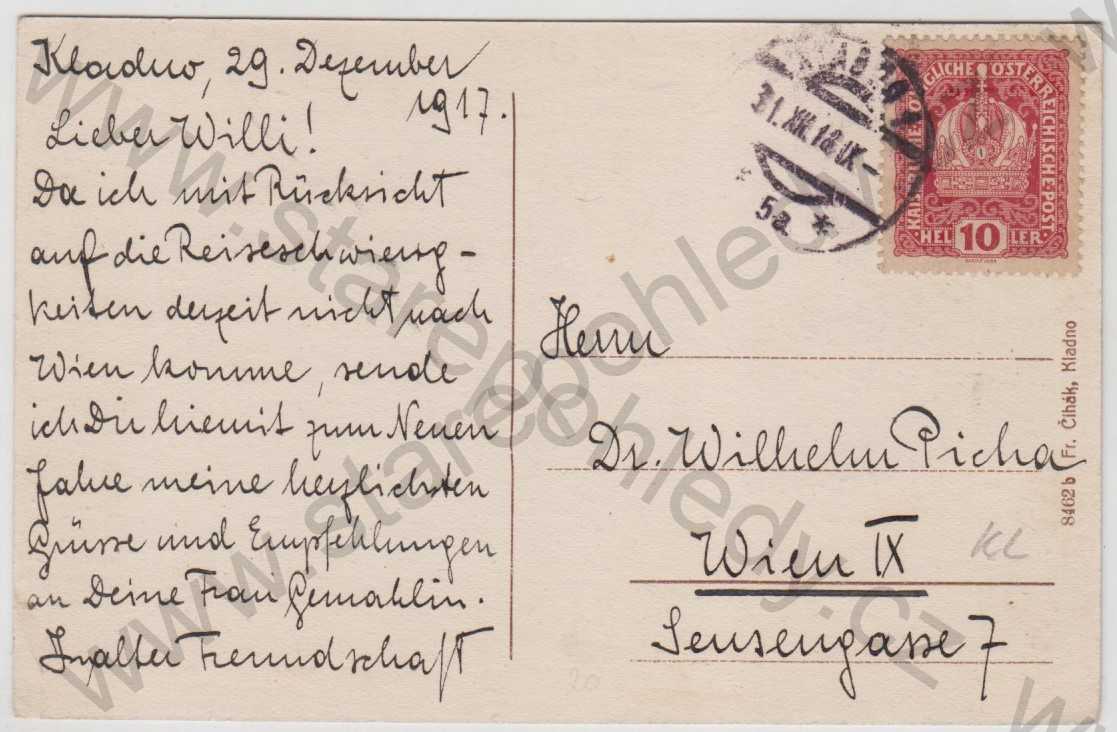 Kladno, 29. Dezember
1917.
Lieber Willi!
Da ich mit Rücksicht
auf die Reiseschwierig-
keiten derzeit nicht nach
Wien komme, sende
ich Dir hiemit zum Neuen
Jahre meine herzlichsten
Grüsse und Empfehlungen
an Deine Frau Gemahlin.
In alter Freundschaft
31.XII.18.IX-
5a *
KAISERLICHE KÖNIGLICHE ÖSTERREICHISCHE POST
HELLER
10
Herrn
Dr. Wilhelm Picha
Wien IX
Sensengasse 7
KL
20
8462 b Fr. Čihák, Kladno
www.starepohledy.cz
www.starepohledy.cz